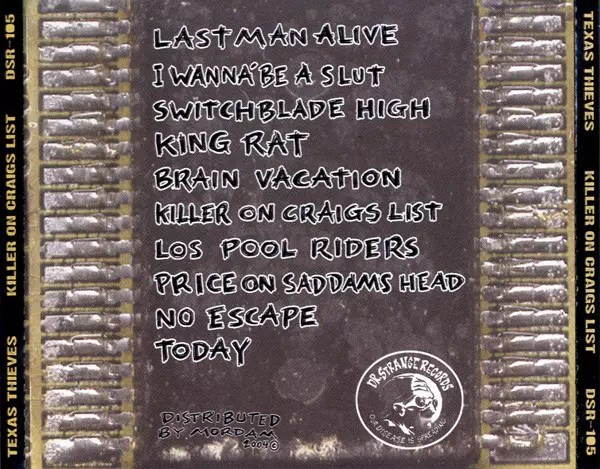 LAST MAN ALIVE
I WANNA BE A SLUT
SWITCHBLADE HIGH
KING RAT
BRAIN VACATION
KILLER ON CRAIGS LIST
LOS POOL RIDERS
PRICE ON SADDAMS HEAD
NO ESCAPE
TODAY
DISTRIBUTED
BY MORDAM
2009 ©
DR. STRANGE RECORDS
OUR DISEASE IS SPREADING
TEXAS THIEVES KILLER ON CRAIGS LIST DSR-105
TEXAS THIEVES KILLER ON CRAIGS LIST DSR-105